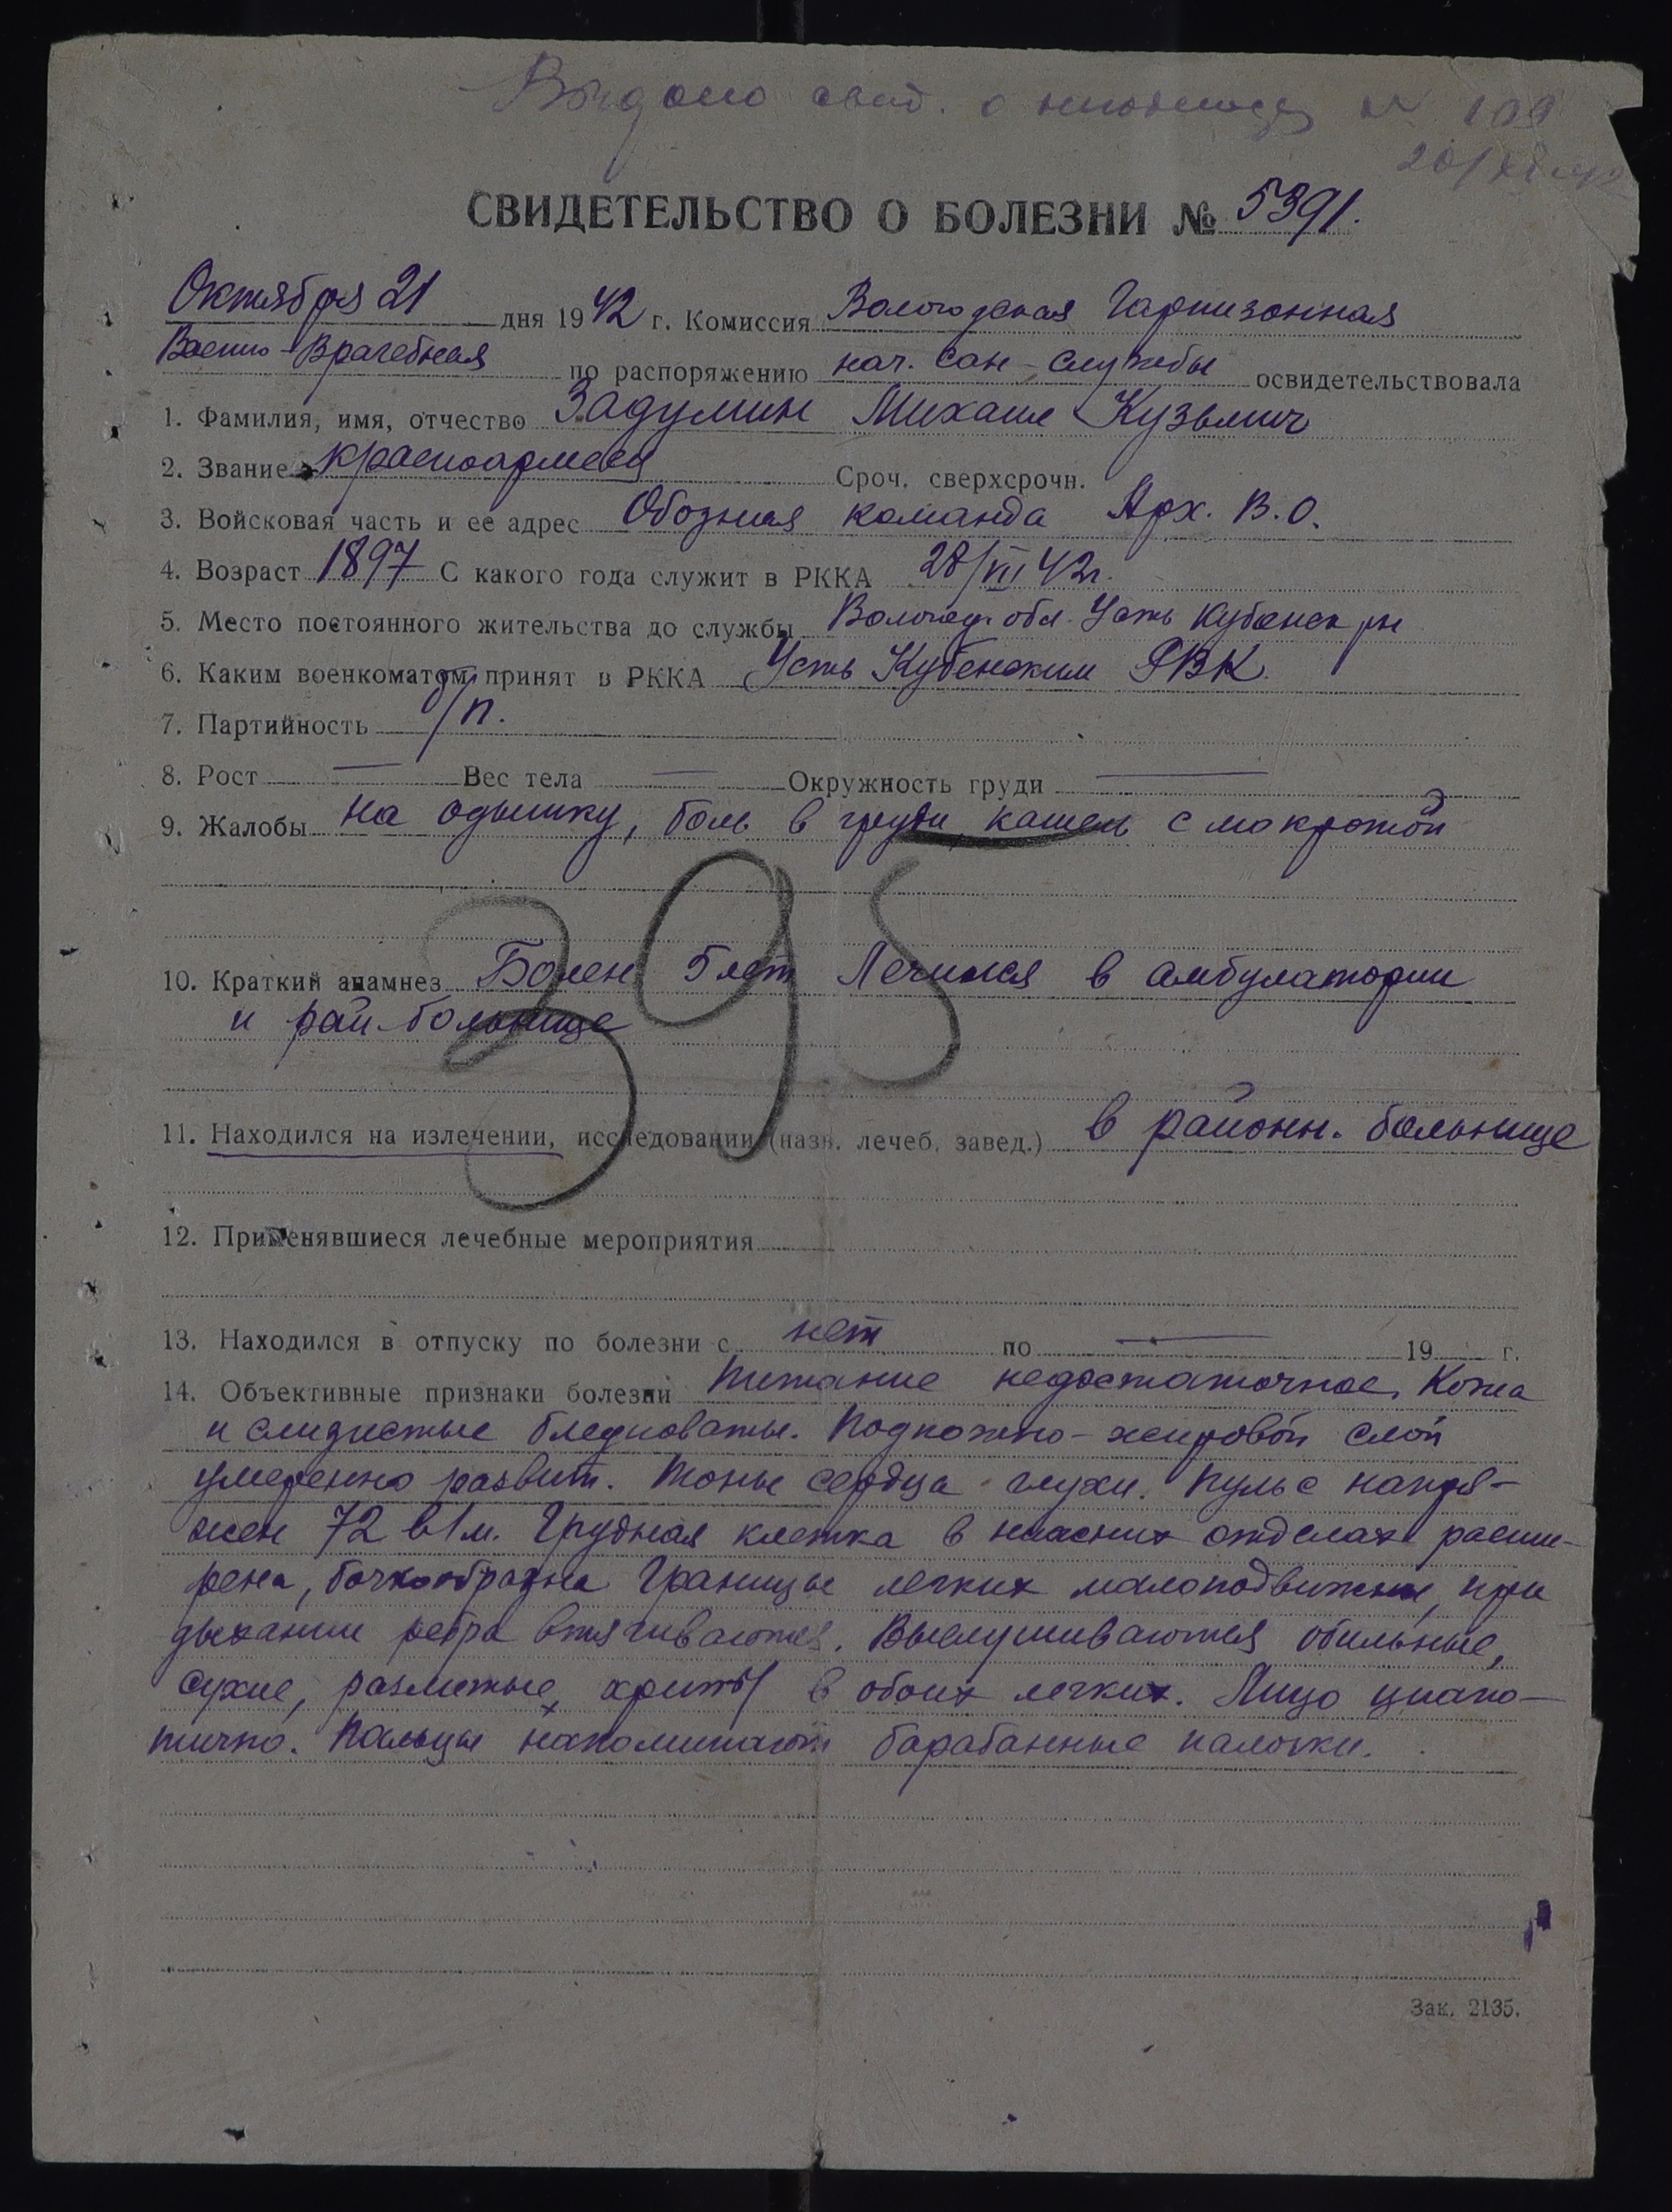 Выдано свид. о № 109
СВИДЕТЕЛЬСТВО О БОЛЕЗНИ № 5391.
Октября 21 дня 1942 г. Комиссия Вологодская Гарнизонная
Военно-Врачебная по распоряжению нач. сан-службы освидетельствовала
1. Фамилия, имя, отчество Задумин Михаил Кузьмич
2. Звание красноармеец Сроч. сверхсрочн.
3. Войсковая часть и ее адрес Обозная команда Арх. В.О.
4. Возраст 1897 С какого года служит в РККА 42г.
5. Место постоянного жительства до службы Вологод. обл. Усть Кубенск рн
6. Каким военкоматом принят в РККА Усть Кубенским РВК.
7. Партийность б/п.
8. Рост — Вес тела — Окружность груди —
9. Жалобы на одышку, боль в груди, кашель с мокротой
395
10. Краткий анамнез Болен 5 лет Лечился в амбулатории
и рай-больнице
11. Находился на излечении, исследовании (назв. лечеб. завед.) в районн. больнице
12. Применявшиеся лечебные мероприятия
13. Находился в отпуску по болезни с нет по — 19 г.
14. Объективные признаки болезни Питание недостаточное, Кожа
и слизистые бледноваты. Подкожно-жировой слой
умеренно развит. Тоны сердца глухи. Пульс напря-
жен 72 в 1 м. Грудная клетка в нижних отделах расши-
рена, бочкообразна Границы легких малоподвижны, при
дыхании ребра втягиваются. Выслушиваются обильные,
сухие, разлитые, хрипы в обоих легких. Лицо циано-
тично. Пальцы напоминают барабанные палочки.
Зак. 2135.